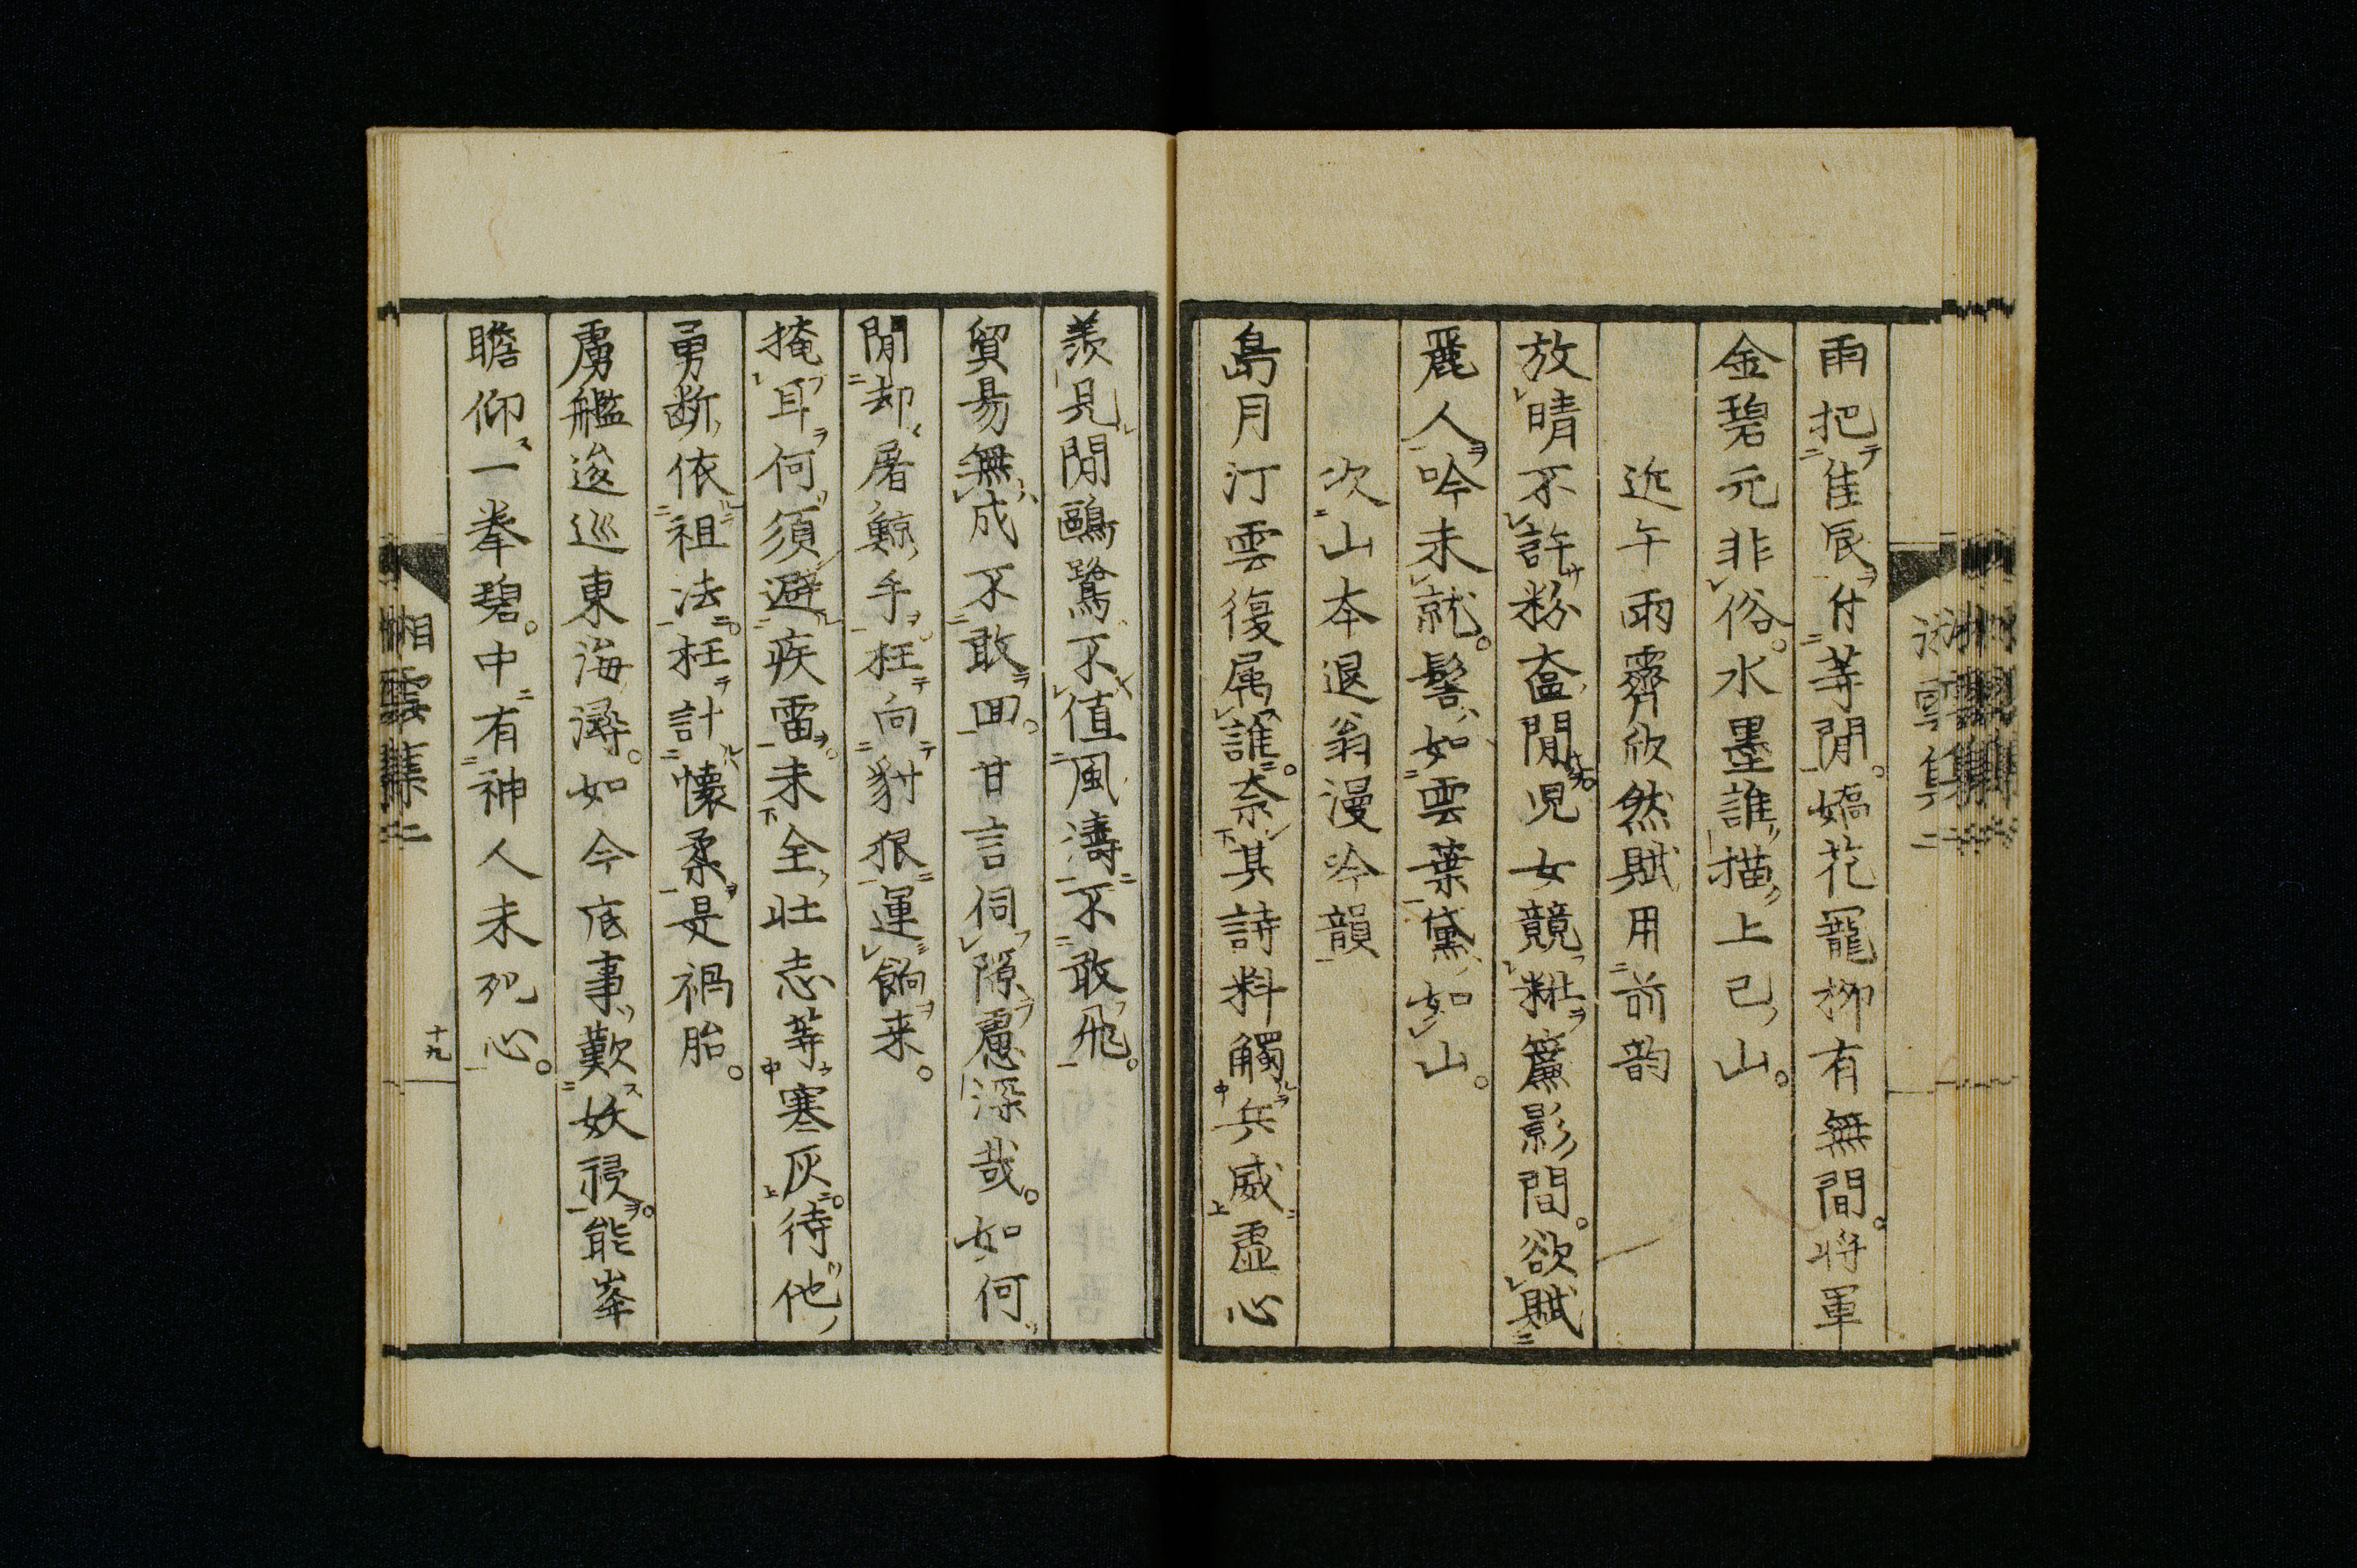 雨把佳辰付等閒。嬌花寵柳有無間。將軍
金碧元非俗。水墨誰描上巳山。
近午雨霽欣然賦用前韵
放晴不許粉奩閒。児女競粧簾影間。欲賦
麗人吟未就。髻如雲葉黛如山。
次山本退翁漫吟韻
島月汀雲復属誰。奈其詩料觸兵威。虚心
羨見閒鷗鷺。不值風濤不敢飛。
貿易無成不敢回。甘言伺隙慮深哉。如何
閒却屠鯨手。枉向豺狠運餉来。
掩耳何須避疾雷。未全壮志等寒灰。待他
勇断依祖法。枉計懐柔是禍胎。
虜艦逡巡東海潯。如今底事歎妖祲。能峯
瞻仰一拳碧。中有神人未死心。
湘雲集二
十九